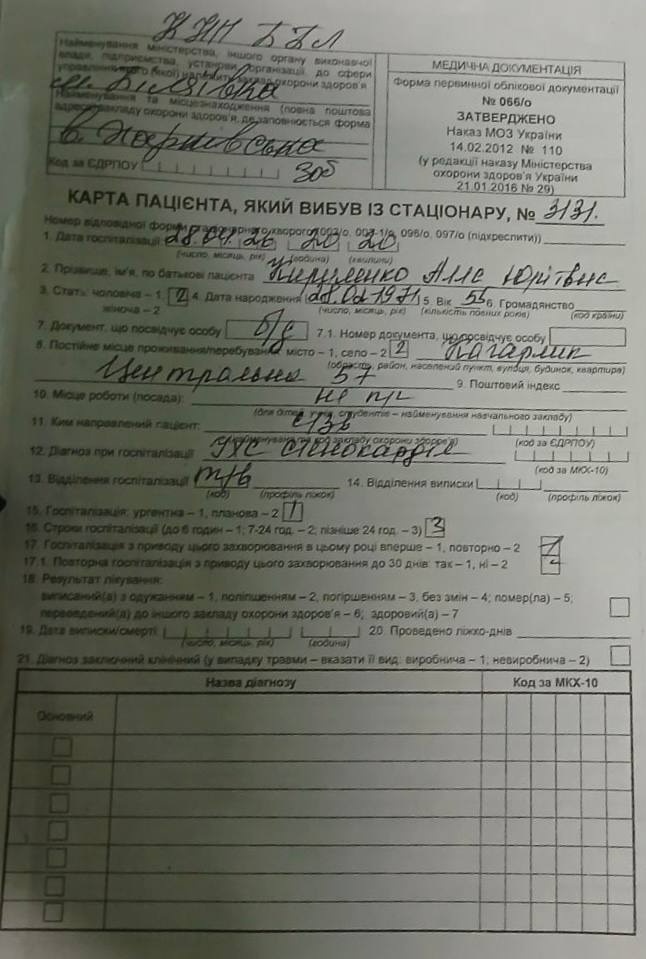 КНП ББЛ
Найменування міністерства, іншого органу виконавчої
влади, підприємства, установи, організації, до сфери
управління якого належить заклад охорони здоров'я
Найменування та місцезнаходження (повна поштова
адреса) закладу охорони здоров'я, де заповнюється форма
Код за ЄДРПОУ
МЕДИЧНА ДОКУМЕНТАЦІЯ
Форма первинної облікової документації
№ 066/о
ЗАТВЕРДЖЕНО
Наказ МОЗ України
14.02.2012 № 110
(у редакції наказу Міністерства
охорони здоров'я України
21.01.2016 № 29)
КАРТА ПАЦІЄНТА, ЯКИЙ ВИБУВ ІЗ СТАЦІОНАРУ, № 3131.
Номер відповідної форми 003-1/о, 096/о, 097/о (підкреслити))
1. Дата госпіталізації 28.04.26 20 20
(число, місяць, рік) (година) (хвилини)
2. Прізвище, ім'я, по батькові пацієнта
3. Стать: чоловіча – 1, 2 4. Дата народження 1971 5. Вік 55 6. Громадянство
жіноча – 2 (число, місяць, рік) (кількість повних років) (код країни)
7. Документ, що посвідчує особу б/д 7.1. Номер документа, що посвідчує особу
8. Постійне місце проживання/перебування: місто – 1, село – 2 2 Кагарлик
(область, район, населений пункт, вулиця, будинок, квартира)
Центральна 57 9. Поштовий індекс
10. Місце роботи (посада): не пр
(для дітей, учнів, студентів – найменування навчального закладу)
11. Ким направлений пацієнт:
(найменування та код закладу охорони здоров'я) (код за ЄДРПОУ)
12. Діагноз при госпіталізації ІХС Стенокардія
(код за МКХ-10)
13. Відділення госпіталізації 14. Відділення виписки
(код) (профіль ліжок) (код) (профіль ліжок)
15. Госпіталізація: ургентна – 1, планова – 2 1
16. Строки госпіталізації (до 6 годин – 1; 7-24 год. – 2; пізніше 24 год. – 3) 3
17. Госпіталізація з приводу цього захворювання в цьому році вперше – 1, повторно – 2
17.1. Повторна госпіталізація з приводу цього захворювання до 30 днів: так – 1, ні – 2
18. Результат лікування:
виписаний(а) з одужанням – 1, поліпшенням – 2, погіршенням – 3, без змін – 4; помер(ла) – 5;
переведений(а) до іншого закладу охорони здоров'я – 6; здоровий(а) – 7
19. Дата виписки/смерті 20. Проведено ліжко-днів
(число, місяць, рік) (година)
21. Діагноз заключний клінічний (у випадку травми – вказати її вид: виробнича – 1; невиробнича – 2)
Назва діагнозу Код за МКХ-10
Основний